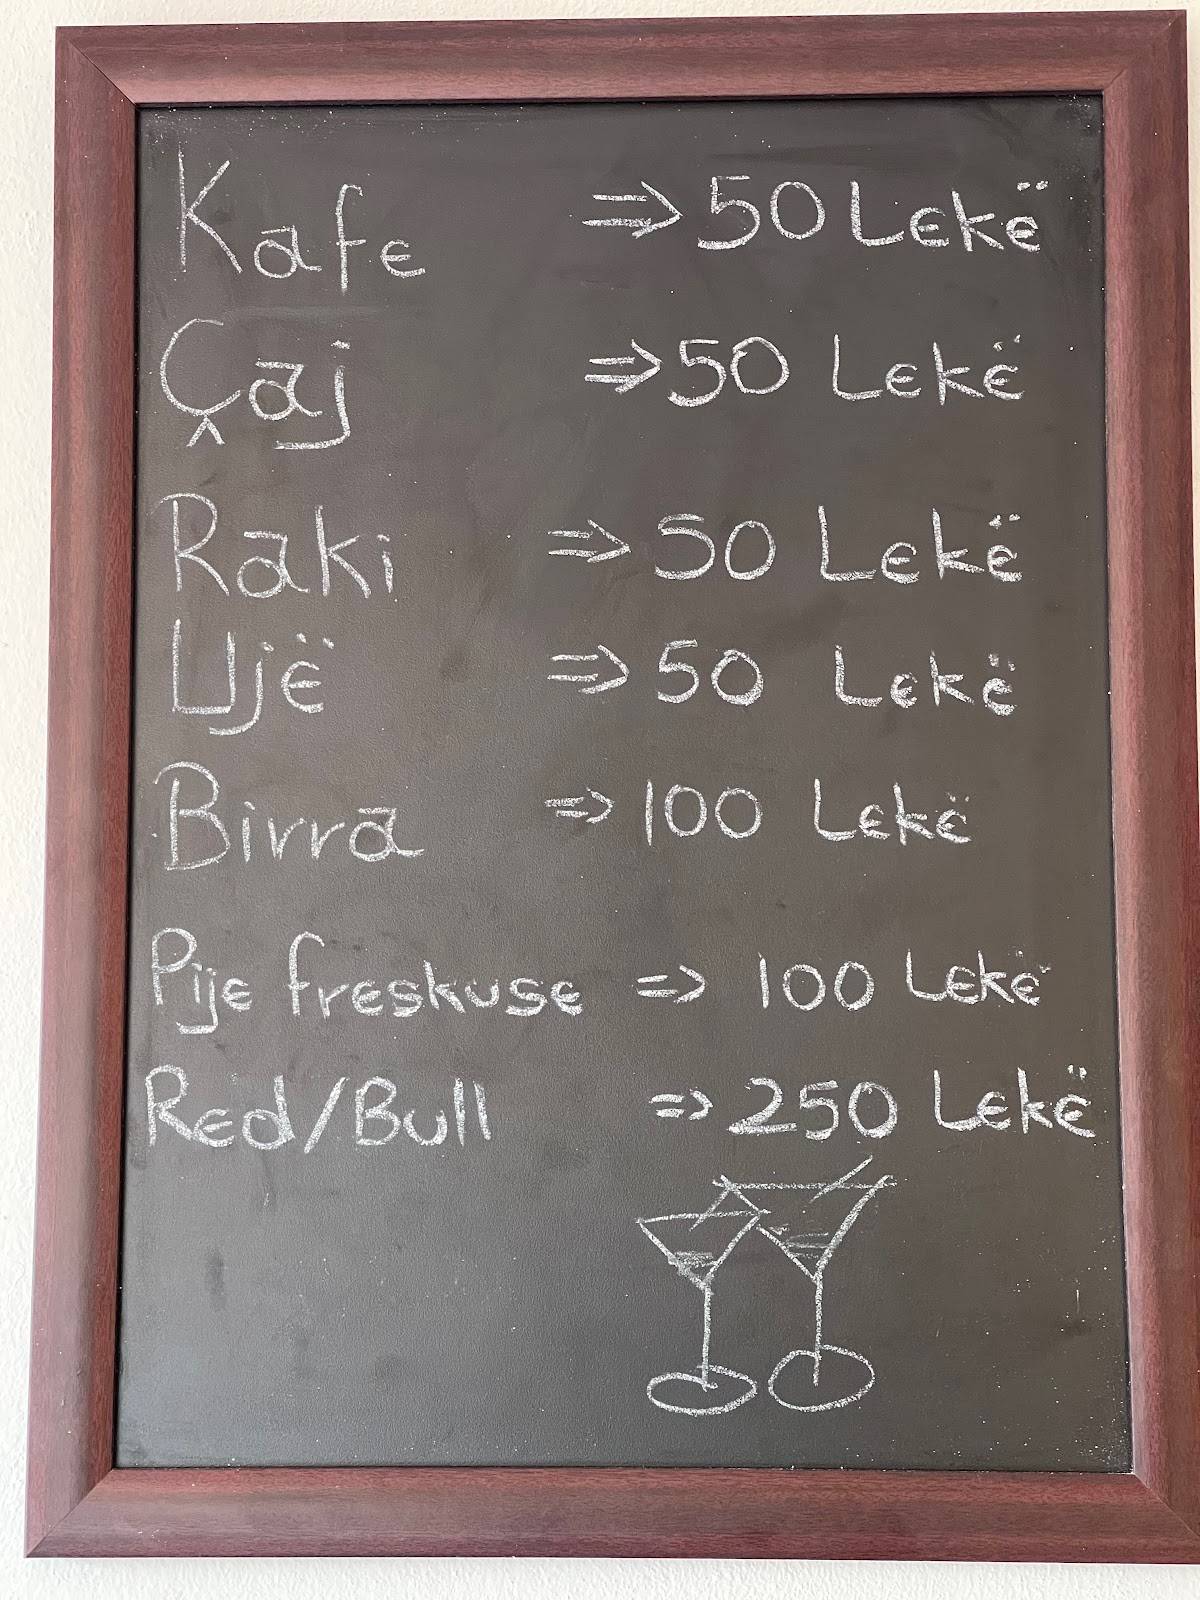 Kafe => 50 Lekë
Çaj => 50 Lekë
Raki => 50 Lekë
Ujë => 50 Lekë
Birra => 100 Lekë
Pije freskuse => 100 Lekë
Red/Bull => 250 Lekë